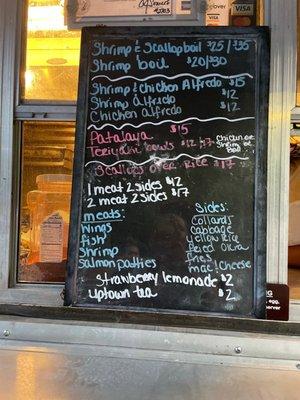 Shrimp & Scallop boil $25/$35
Shrimp boil $20/$30
Shrimp & Chicken Alfredo $15
Shrimp Alfredo $12
Chicken Alfredo $12
Patalaya $15
Teriyaki bowls $12
Chicken or
Shrimp or
Both
Scallops over Rice $17
1 meat 2 sides $12
2 meat 2 sides $17
meats:
Wings
Fish
Shrimp
Salmon patties
Sides:
Collards
Cabbage
Yellow Rice
Fried Okra
fries
mac! Cheese
Strawberry lemonade $2
Uptown tea $2
VISA